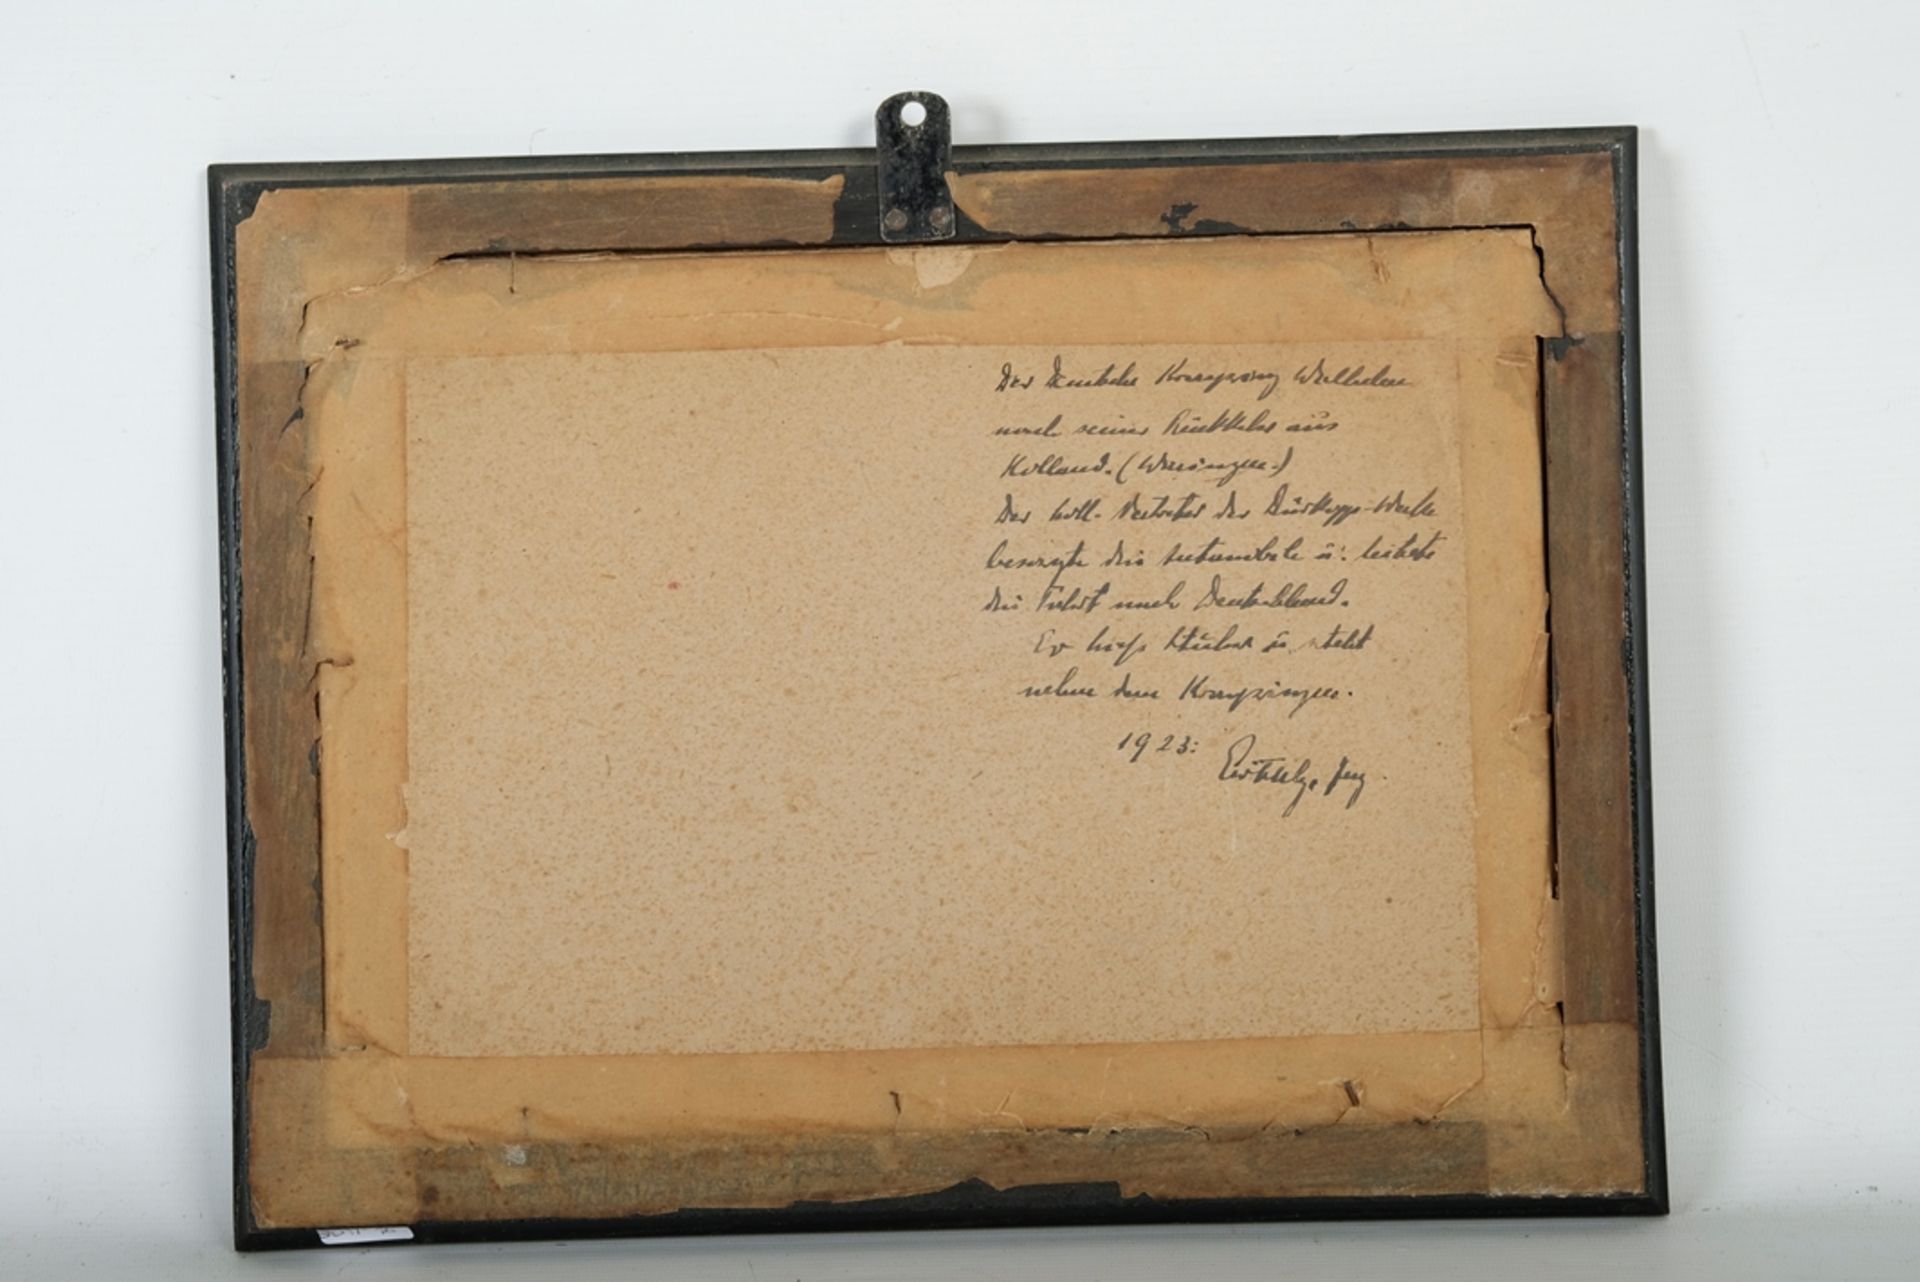 Der Deutsche Kronprinz Wilhelm
nach seiner Rückkehr aus
Holland. (Wieringen.)
Der holl. Vertreter der Dürkopp-Werke
besorgte die Automobile u. leitete
die Fahrt nach Deutschland.
Er hiess Stüber u. steht
neben dem Kronprinzen.
1923: